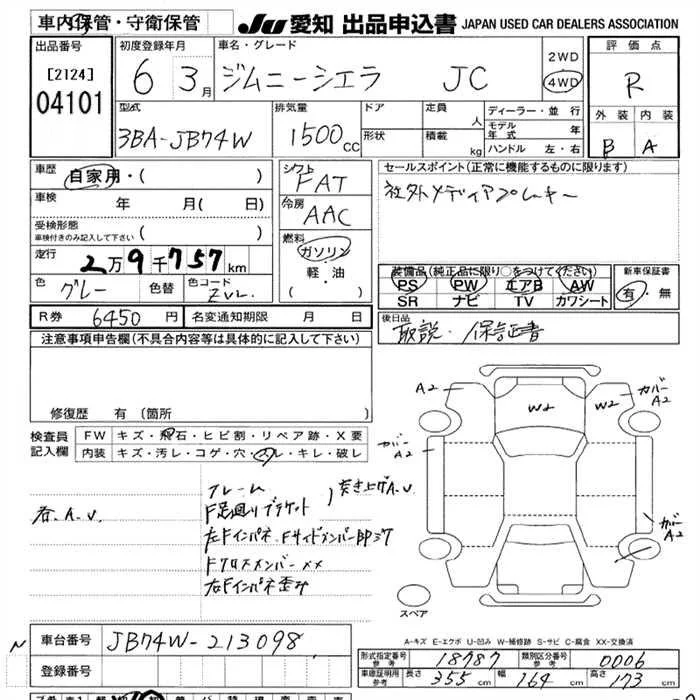 車内保管・守衛保管
JU 愛知 出品申込書 JAPAN USED CAR DEALERS ASSOCIATION
出品番号
[2124]
04101
初度登録年月
6 3月
車名・グレード
ジムニーシエラ JC
2WD
4WD
評価点
R
外装 内装
B A
型式
3BA-JB74W
排気量
1500cc
ドア
形状
定員 人
積載 kg
ディーラー・並行
モデル年式 年
ハンドル 左・右
車歴
自家用・( )
車検 年 月( 日)
受検形態
車検付きのみ記入して下さい ( )
走行
2万9千757km
色 グレー 色替 色コード ZVL
シフト
FAT
冷房
AAC
燃料
ガソリン
軽・油
( )
セールスポイント(正常に機能するものに限ります)
社外メディアプレーヤー
装備品(純正品に限り○をつけてください)
PS PW エアB AW
SR ナビ TV カワシート
新車保証書
有・無
R券 6450円 名変通知期限 月 日
後日品
取説・保証書
注意事項申告欄(不具合内容等は具体的に記入して下さい)
修復歴 有(箇所 )
検査員記入欄
FW キズ・飛石・ヒビ割・リペア跡・X要
内装 キズ・汚レ・コゲ・穴・スレ・キレ・破レ
フレーム
F足廻りブラケット
突き上げA.U.
左Fインパネ、Fサイドメンバー
Fクロスメンバー××
右Fインパネ歪み
A2
W2
W2
カバー
A2
カバー
A2
カバー
A2
スペア
A-キズ E-エクボ U-凹み W-補修跡 S-サビ C-腐食 XX-交換済
N
車台番号 JB74W-213098
登録番号
形式指定番号 参考 18787 類別区分番号 参考 0006
車庫証明用 参考 長さ 355cm 幅 164cm 高さ 173cm